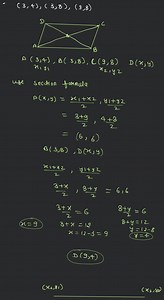 (3,4), (3,8), (9,8)
D C
A B
A(3,4), B(3,8), C(9,8) D(x,y)
x₁y₁ x₂,y₂
use section formula
(x,y) = x₁+x₂/2, y₁+y₂/2
= 3+9/2, 4+8/2
= (6,6)
B(3,8), D(x,y)
x₁+x₂/2, y₁+y₂/2
3+x/2, 8+y/2 = 6,6
3+x/2 = 6 8+y/2 = 6
3+x = 12 8+y = 12
x = 12-3 = 9 y = 12-8
x = 9 y = 4
D(9,4)